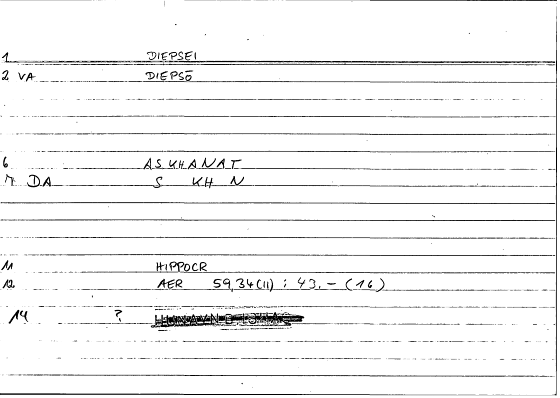 1 DIEPSEI
2 VA DIEPSō
6 ASKHANAT
7 DA S KH N
11 HIPPOCR
12 AER 59,34(11) : 43.- (16)
14 ?